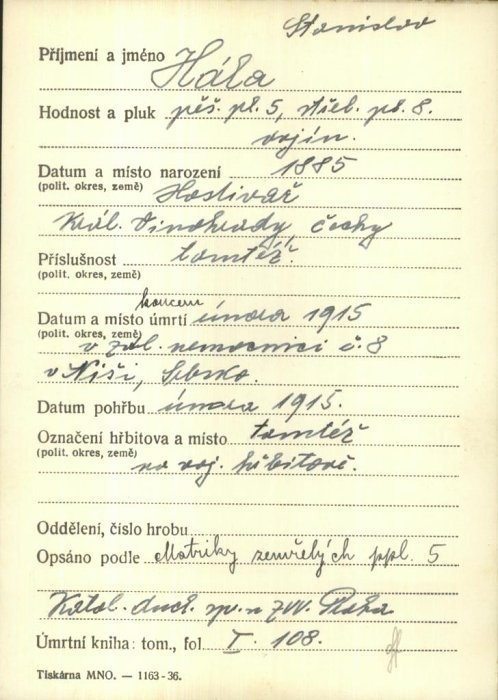 Stanislav
Příjmení a jméno Hála
Hodnost a pluk pěš. pl. 5, střel. pl. 8.
vojín.
Datum a místo narození 1885
(polit. okres, země) Hostivař
Král. Vinohrady, Čechy
Příslušnost tamtéž.
(polit. okres, země)
koncem
Datum a místo úmrtí února 1915
(polit. okres, země)
v zál. nemocnici č. 8
v Niši, Srbsko.
Datum pohřbu února 1915.
Označení hřbitova a místo tamtéž
(polit. okres, země)
na voj. hřbitově.
Oddělení, číslo hrobu
Opsáno podle Matriky zemřelých ppl. 5
Katol. duch. sp. u ZVV. Praha
Úmrtní kniha: tom., fol I. 108.
Tiskárna MNO. — 1163-36.